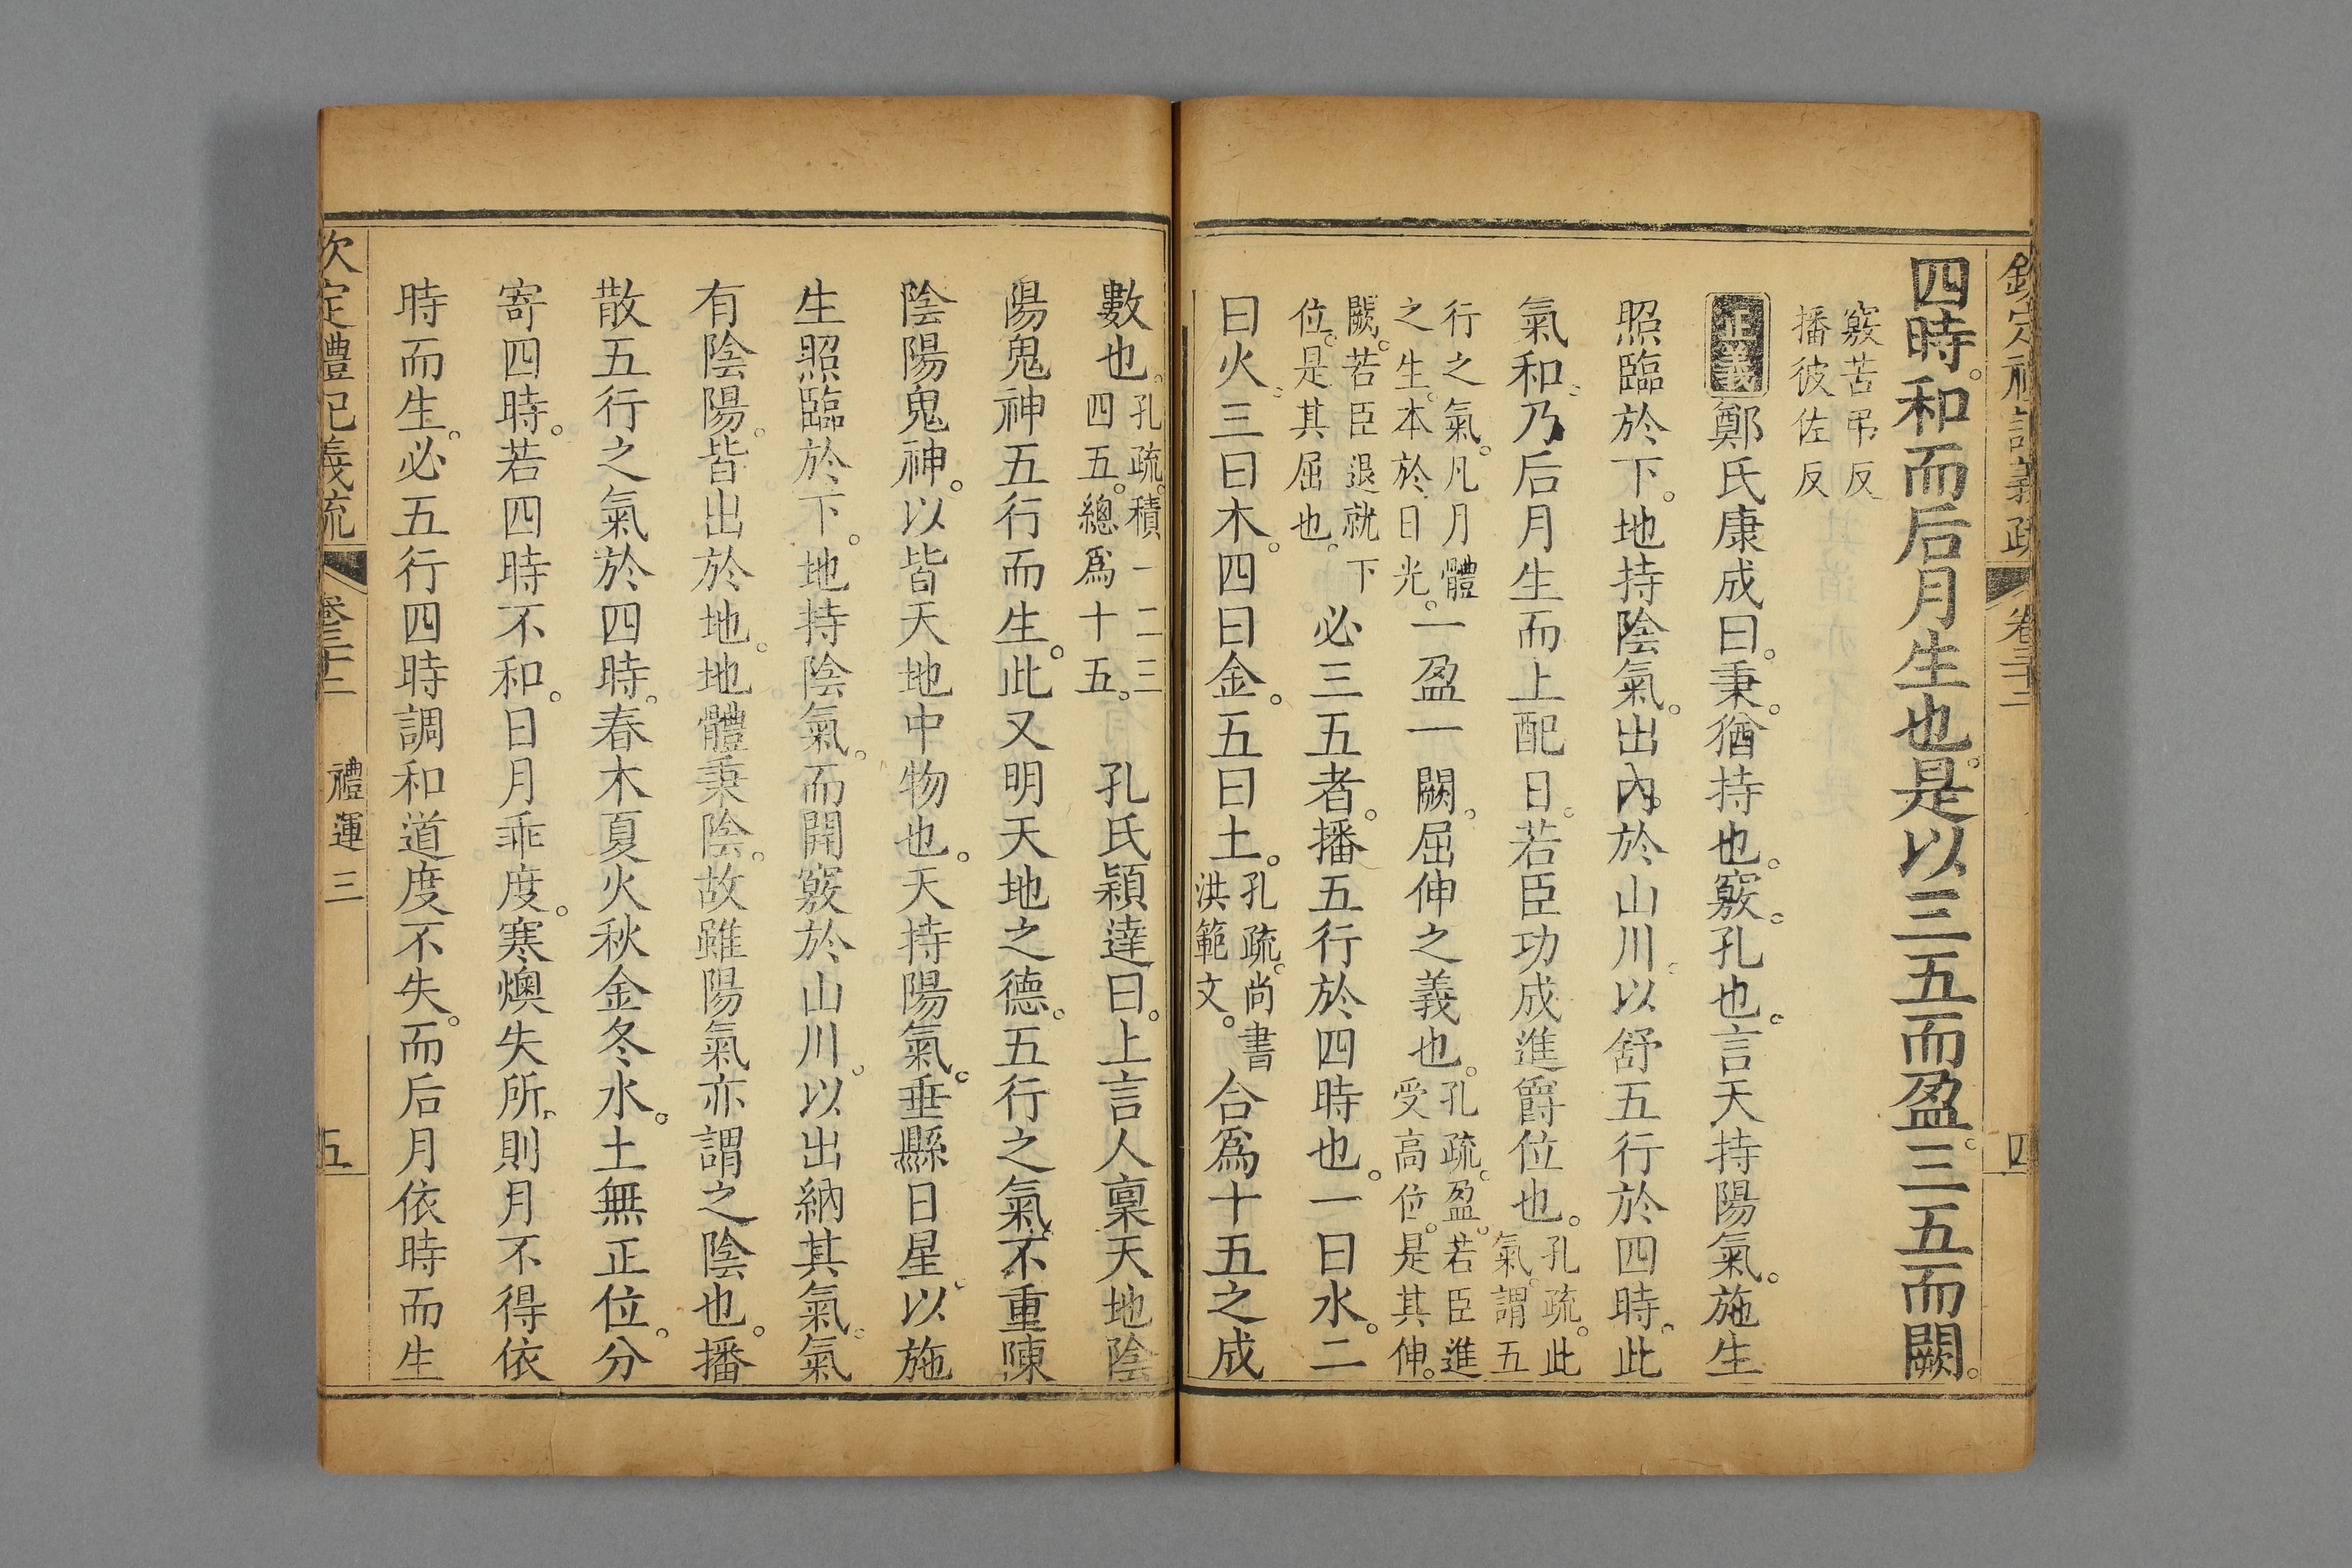 欽定禮記義疏 卷三十二 四
四時。和而后月生也。是以三五而盈。三五而闕。
竅苦弔反
播彼佐反
正義 鄭氏康成曰。秉。猶持也。竅。孔也。言天持陽氣。施生
照臨於下。地持陰氣。出內於山川。以舒五行於四時。此
氣和。乃后月生而上配日。若臣功成進爵位也。孔疏。此氣。謂五
行之氣。凡月體之生。本於日光。一盈一闕。屈伸之義也。孔疏。盈。若臣進受高位。是其伸。
闕。若臣退就下位。是其屈也。必三五者。播五行於四時也。一曰水。二
曰火。三曰木。四曰金。五曰土。孔疏。尚書洪範文。合爲十五之成
數也。孔疏。積一二三四五。總爲十五。孔氏穎達曰。上言人稟天地陰
陽鬼神五行而生。此又明天地之德。五行之氣。不重陳
陰陽鬼神。以皆天地中物也。天持陽氣。垂縣日星。以施
生照臨於下。地持陰氣。而開竅於山川。以出納其氣。氣
有陰陽。皆出於地。地體秉陰。故雖陽氣亦謂之陰也。播
散五行之氣於四時。春木夏火秋金冬水。土無正位。分
寄四時。若四時不和。日月乖度。寒燠失所。則月不得依
時而生。必五行四時調和道度不失。而后月依時而生
欽定禮記義疏 卷三十二 禮運三 五